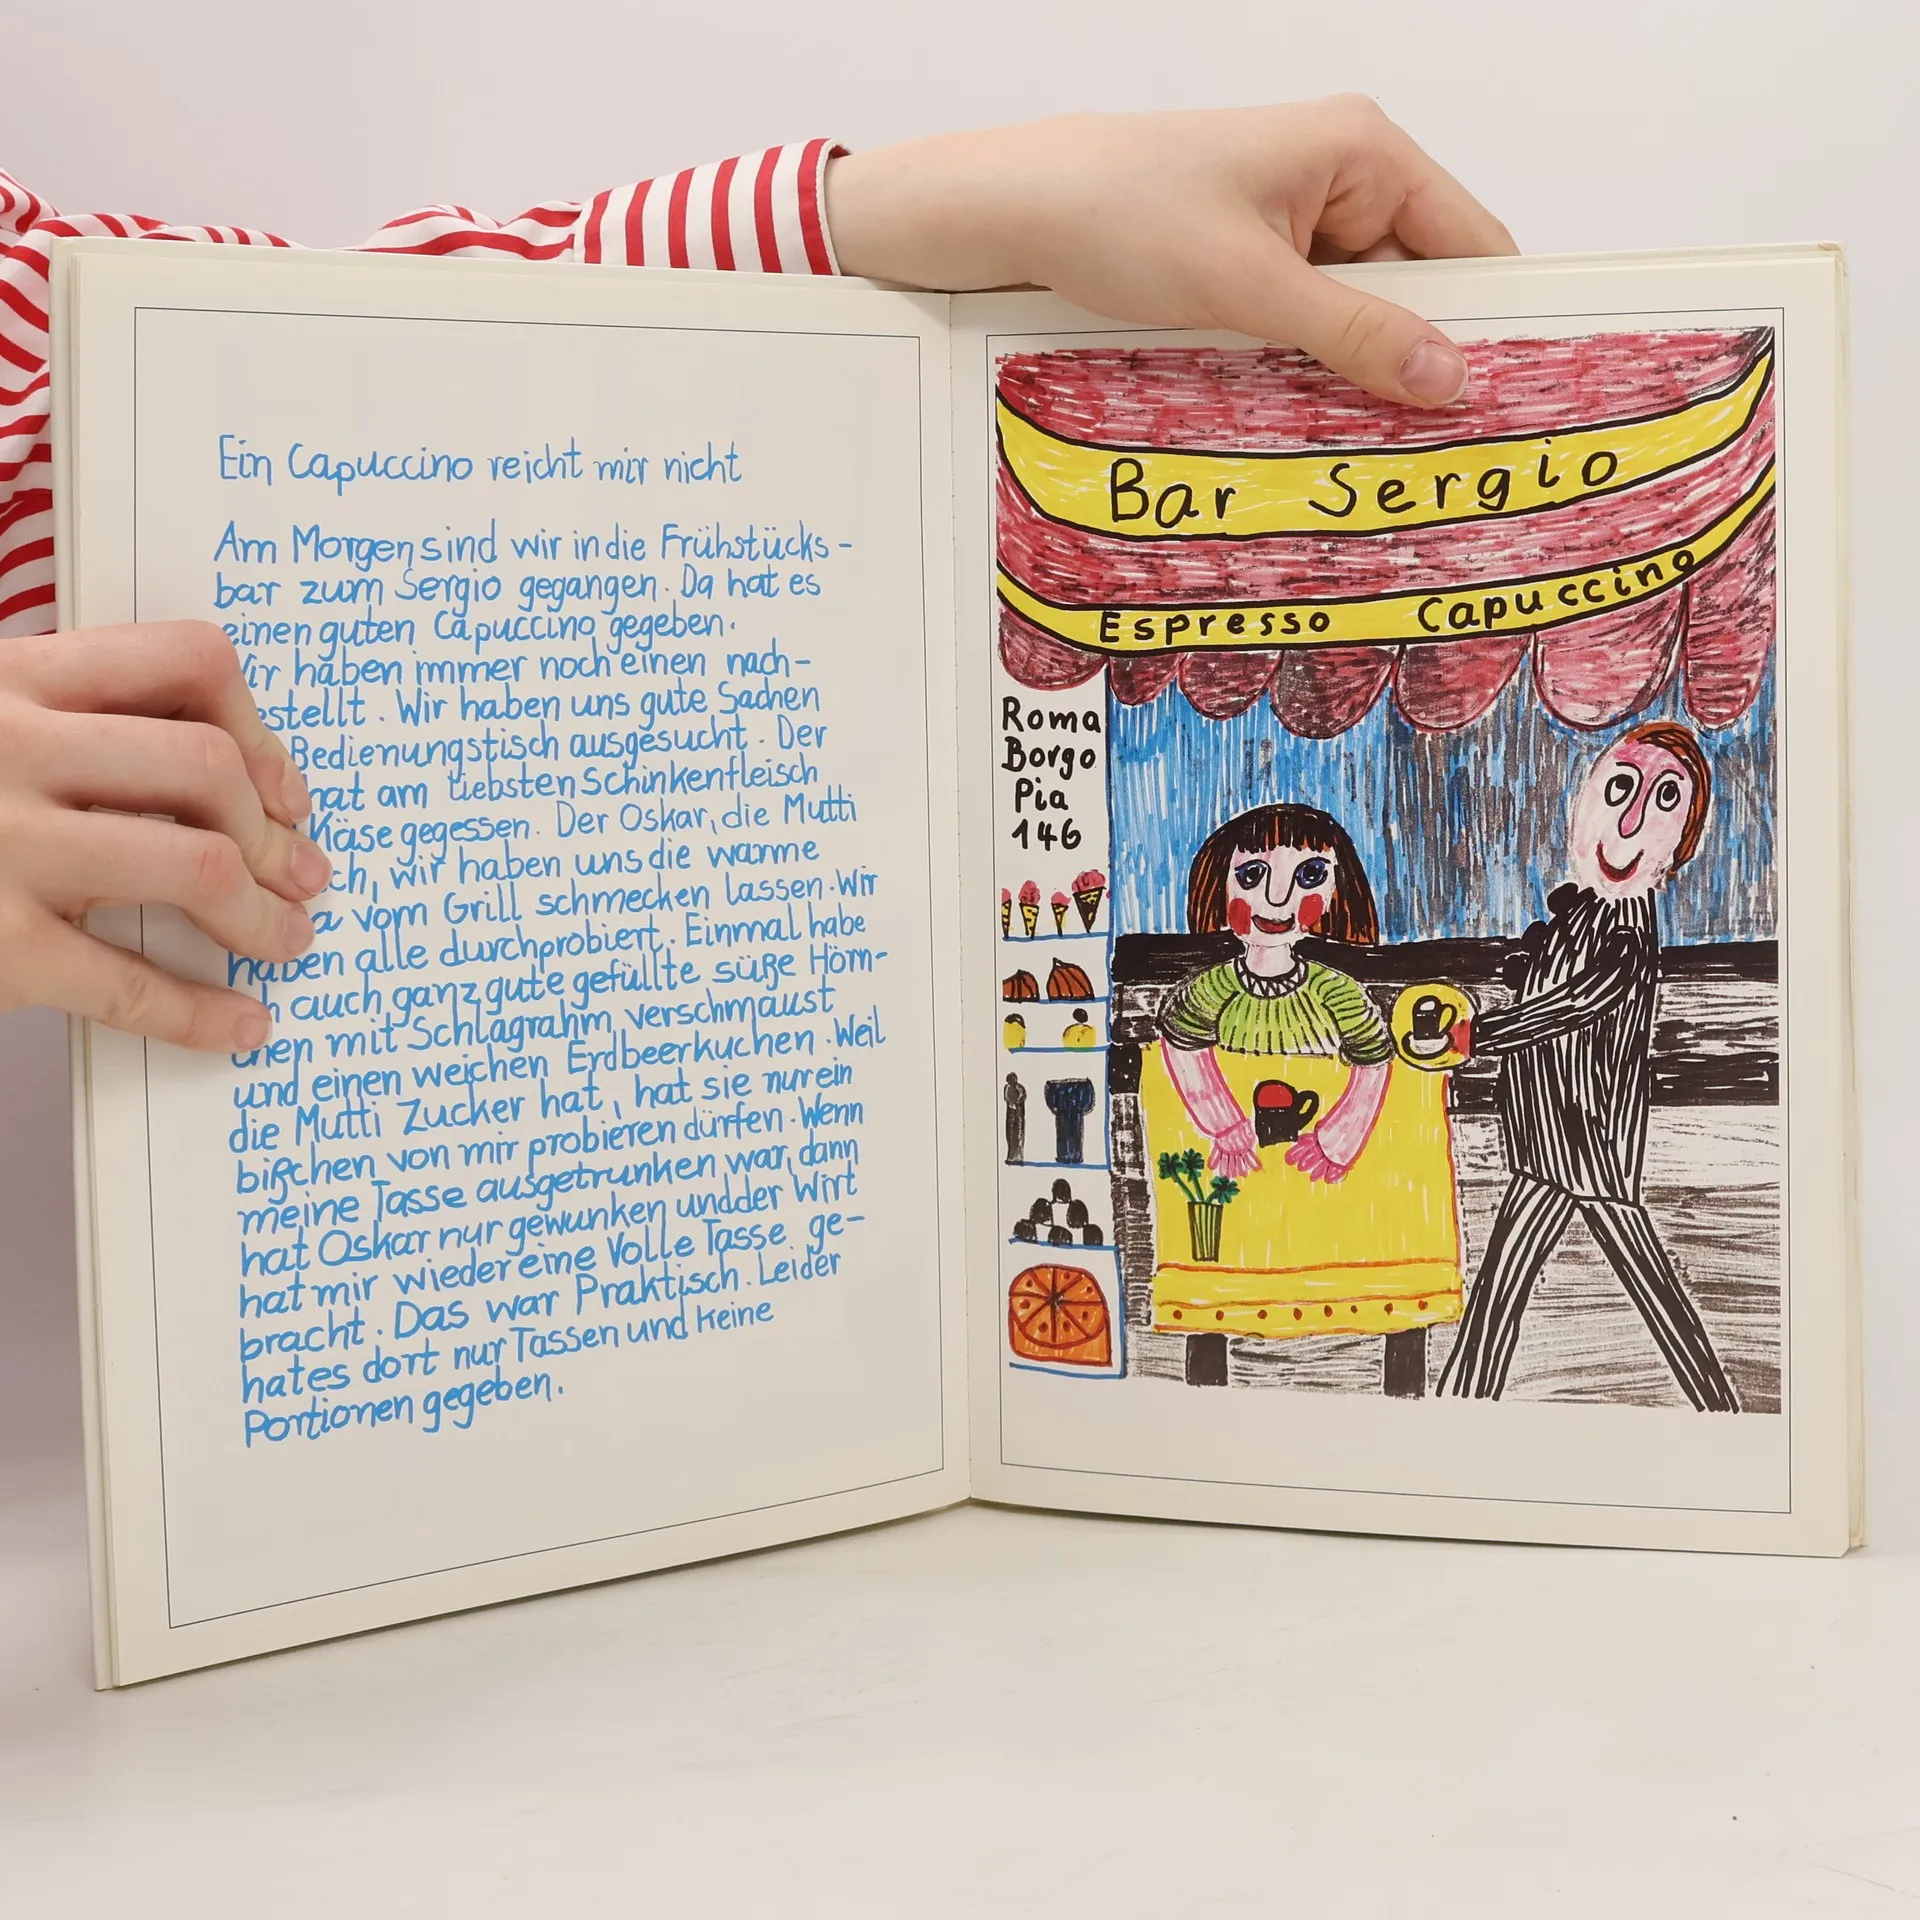 Ein Capuccino reicht mir nicht
Am Morgen sind wir in die Frühstücks-
bar zum Sergio gegangen. Da hat es
einen guten Capuccino gegeben.
Wir haben immer noch einen nach-
estellt. Wir haben uns gute Sachen
Bedienungstisch ausgesucht. Der
hat am liebsten Schinkenfleisch
Käse gegessen. Der Oskar, die Mutti
ch, wir haben uns die warme
a vom Grill schmecken lassen. Wir
haben alle durchprobiert. Einmal habe
h auch ganz gute gefüllte süße Hörn-
chen mit Schlagrahm verschmaust
und einen weichen Erdbeerkuchen. Weil
die Mutti Zucker hat, hat sie nur ein
bißchen von mir probieren dürfen. Wenn
meine Tasse ausgetrunken war, dann
hat Oskar nur gewunken und der Wirt
hat mir wieder eine Volle Tasse ge-
bracht. Das war Praktisch. Leider
hat es dort nur Tassen und keine
Portionen gegeben.
Bar Sergio
Espresso Capuccino
Roma
Borgo
Pia
146